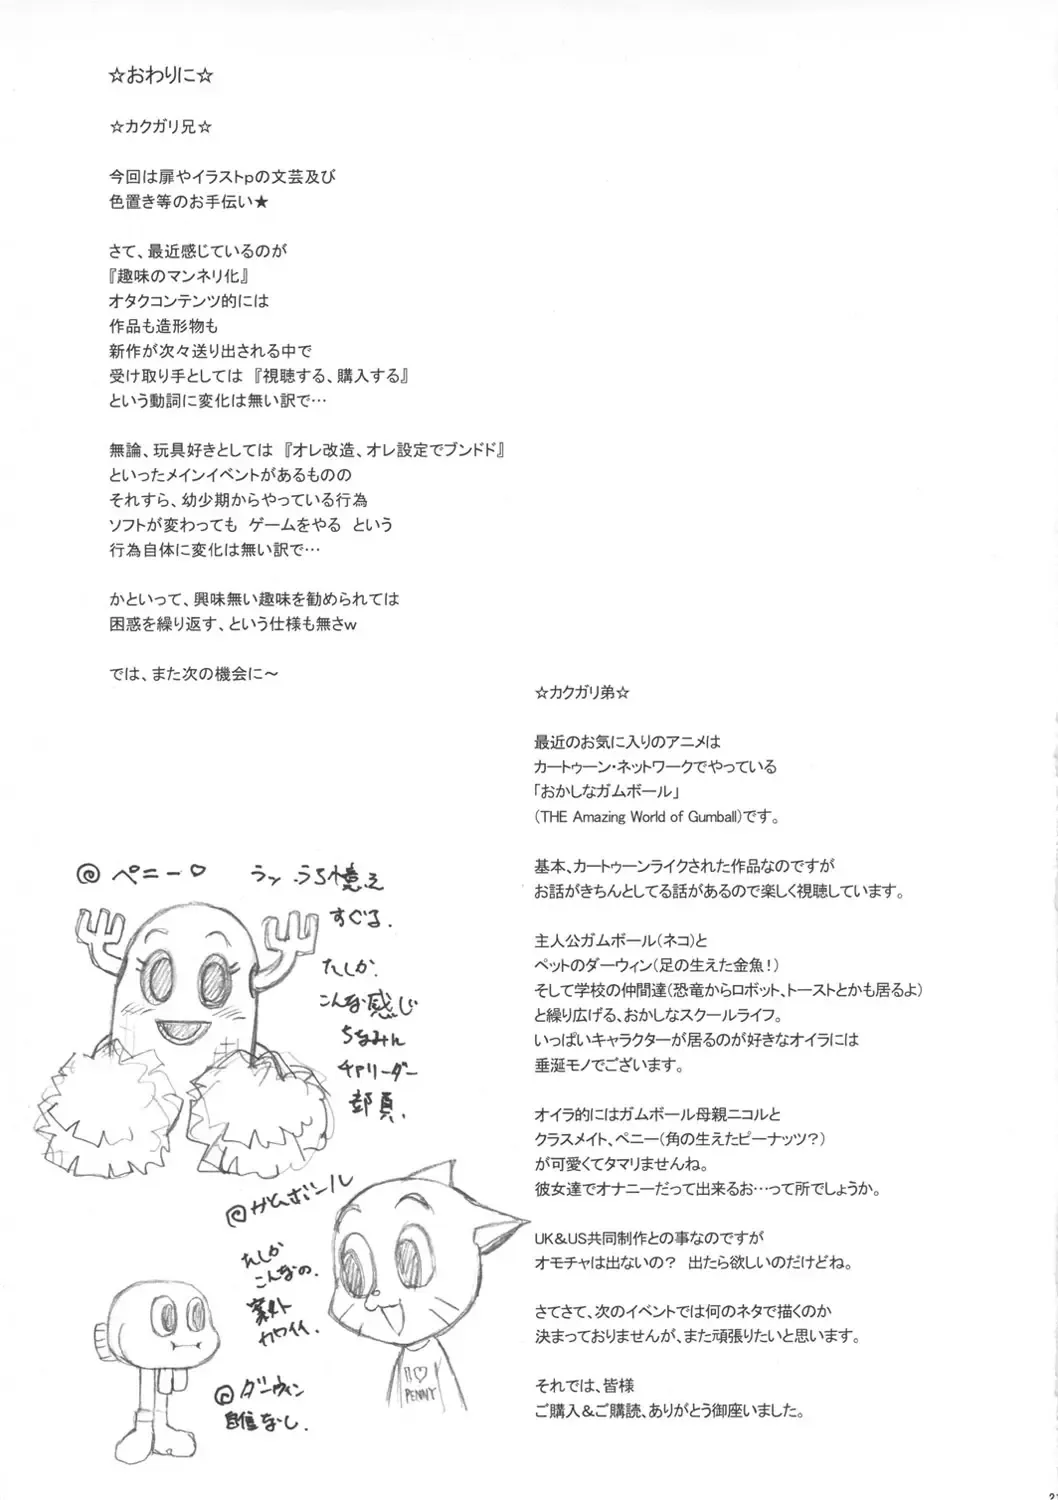 ☆おわりに☆
☆カクガリ兄☆
今回は扉やイラストpの文芸及び
色置き等のお手伝い★
さて、最近感じているのが
『趣味のマンネリ化』
オタクコンテンツ的には
作品も造形物も
新作が次々送り出される中で
受け取り手としては 『視聴する、購入する』
という動詞に変化は無い訳で…
無論、玩具好きとしては 『オレ改造、オレ設定でブンドド』
といったメインイベントがあるものの
それすら、幼少期からやっている行為
ソフトが変わっても ゲームをやる という
行為自体に変化は無い訳で…
かといって、興味無い趣味を勧められては
困惑を繰り返す、という仕様も無さw
では、また次の機会に～
☆カクガリ弟☆
最近のお気に入りのアニメは
カートゥーン・ネットワークでやっている
「おかしなガムボール」
(THE Amazing World of Gumball)です。
基本、カートゥーンライクされた作品なのですが
お話がきちんとしてる話があるので楽しく視聴しています。
主人公ガムボール(ネコ)と
ペットのダーウィン(足の生えた金魚！)
そして学校の仲間達(恐竜からロボット、トーストとかも居るよ)
と繰り広げる、おかしなスクールライフ。
いっぱいキャラクターが居るのが好きなオイラには
垂涎モノでございます。
オイラ的にはガムボール母親ニコルと
クラスメイト、ペニー(角の生えたピーナッツ？)
が可愛くてタマリませんね。
彼女達でオナニーだって出来るお…って所でしょうか。
UK&US共同制作との事なのですが
オモチャは出ないの？ 出たら欲しいのだけどね。
さてさて、次のイベントでは何のネタで描くのか
決まっておりませんが、また頑張りたいと思います。
それでは、皆様
ご購入&ご購読、ありがとう御座いました。
@ ペニー♡
うろ憶え
すぐる.
たしか.
こんな感じ
ちなみに
チアリーダー
部員.
@ガムボール
たしか
こんなの.
案外
カワイイ.
I♡
PENNY
@ダーウィン
自信なし.